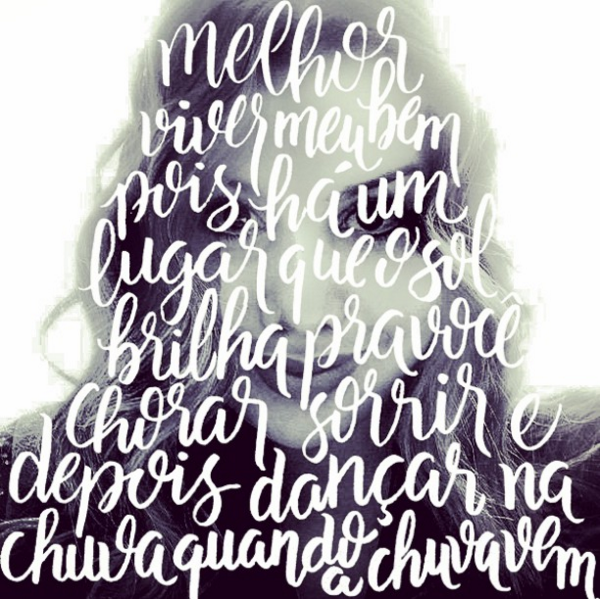 melhor
viver meu bem
pois há um
lugar que o sol
brilha pra você
chorar sorrir e
depois dançar na
chuva quando a chuva vem